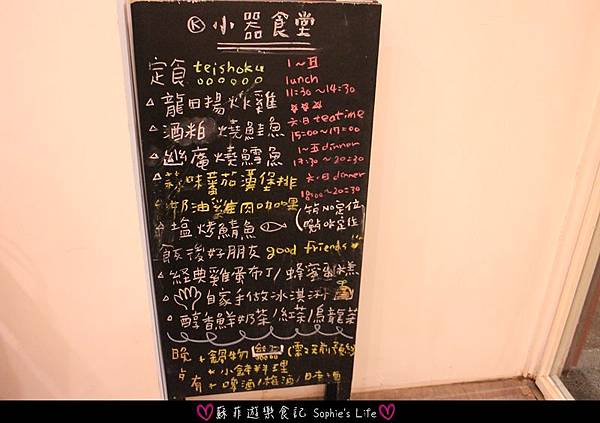 K 小器食堂
定食 teishoku
1~五
lunch
11:30~14:30
△ 龍田揚炸雞
△ 酒粕燒鮭魚
六.日 teatime
15:00~17:00
△ 幽庵燒鱈魚
1~五 dinner
17:30~20:30
蕃茄漢堡排
六.日 dinner
18:00~20:30
奶油雞肉咖哩
△ 塩烤鯖魚
飯後好朋友 good friends
△ 經典雞蛋布丁/蜂蜜蛋糕
△ 自家手做冰淇淋
△ 醇香鮮奶茶/紅茶/烏龍茶
晚 + 鍋物
+ 小鉢料理
有 + 啤酒/梅酒/日本酒
蘇菲遊樂食記 Sophie's Life